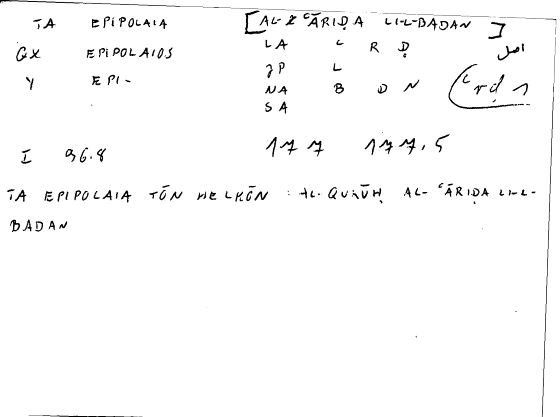 TA EPIPOLAIA [AL-ʿĀRIḌA LI-L-BADAN]
GX EPIPOLAIOS LA ʿ R Ḍ اصل
Y EPI- JP L ʿrḍ 1
NA B D N
SA
I 96.8 177 177.5
TA EPIPOLAIA TŌN HELKŌN : AL-QURŪḤ AL-ʿĀRIḌA LI-L-
BADAN